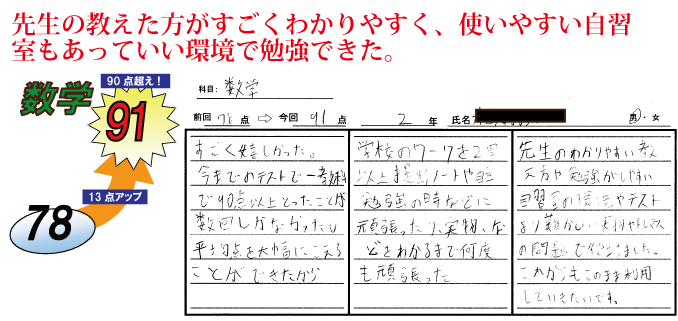 先生の教えた方がすごくわかりやすく、使いやすい自習
室もあっていい環境で勉強できた。
数学
90点超え！
91
13点アップ
78
科目: 数学
前回 78 点 ⇨ 今回 91 点 2 年 氏名 男・女
すごく嬉しかった。
今までのテストで一教科
で90点以上とったことが
数回しかなかったし
平均点を大幅にこえる
ことができたから
学校のワークを2回
以上提出ノートや自
勉強の時などに
頑張ったり、実物、な
どをわかるまで何度
も頑張った
先生のわかりやすい教
え方や勉強がしやすい
自習室の環境やテスト
より難かしい
の問題で
これからもこのまま利用
していきたいです。